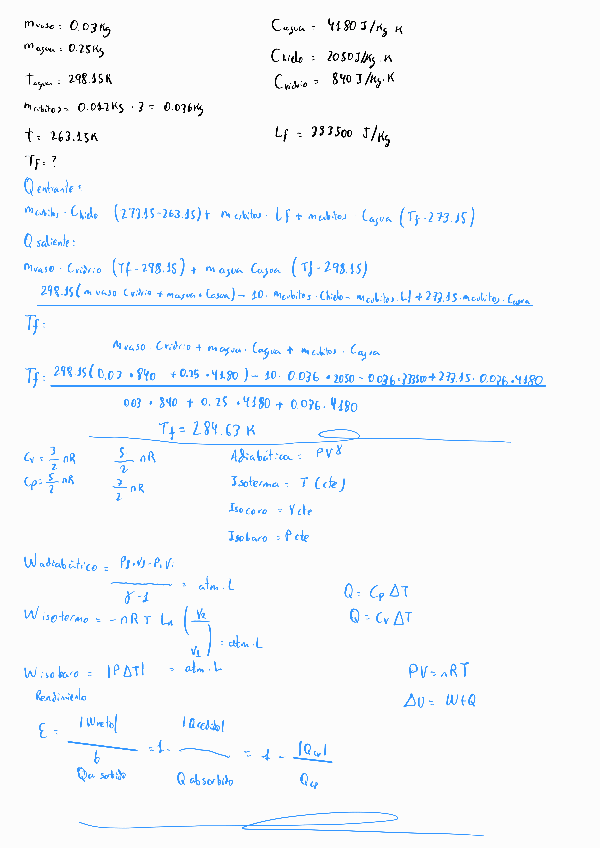 mvaso = 0.03Kg
Cagua = 4180 J/Kg K
magua = 0.25Kg
Chielo = 2050J/Kg K
tagua = 298.15K
Cvidrio = 840 J/Kg.K
mcubitos = 0.012Kg · 3 = 0.036Kg
t = 263.15K
Lf = 333500 J/Kg
Tf = ?
Qentrante:
mcubitos · Chielo (273.15-263.15) + mcubitos · Lf + mcubitos Cagua (Tf - 273.15)
Qsaliente:
mvaso · Cvidrio (Tf - 298.15) + magua Cagua (Tf - 298.15)
298.15(mvaso Cvidrio + magua · Cagua) - 10 · mcubitos · Chielo - mcubitos · Lf + 273.15 · mcubitos · Cagua
Tf:
mvaso Cvidrio + magua · Cagua + mcubitos · Cagua
Tf = 298.15(0.03 · 840 + 0.25 · 4180) - 10 · 0.036 · 2050 - 0.036 · 333500 + 273.15 · 0.036 · 4180
0.03 · 840 + 0.25 · 4180 + 0.036 · 4180
Tf = 284.63 K
Cv = 3/2 nR 5/2 nR
Adiabática = PVγ
Cp = 5/2 nR 7/2 nR
Isoterma = T (cte)
Isocoro = V cte
Isobaro = P cte
Wadiabático = Pf·Vf - Pi Vi / γ - 1 = atm.L
Q = Cp ΔT
Wisotermo = -nRT Ln (V2/V1) = atm.L
Q = Cv ΔT
Wisobaro = |PΔT| = atm.L
PV = nRT
Rendimiento
ΔU = W+Q
ε = |Wneto| / Qabsorbido = 1 - |Qcedido| / Qabsorbido = 1 -